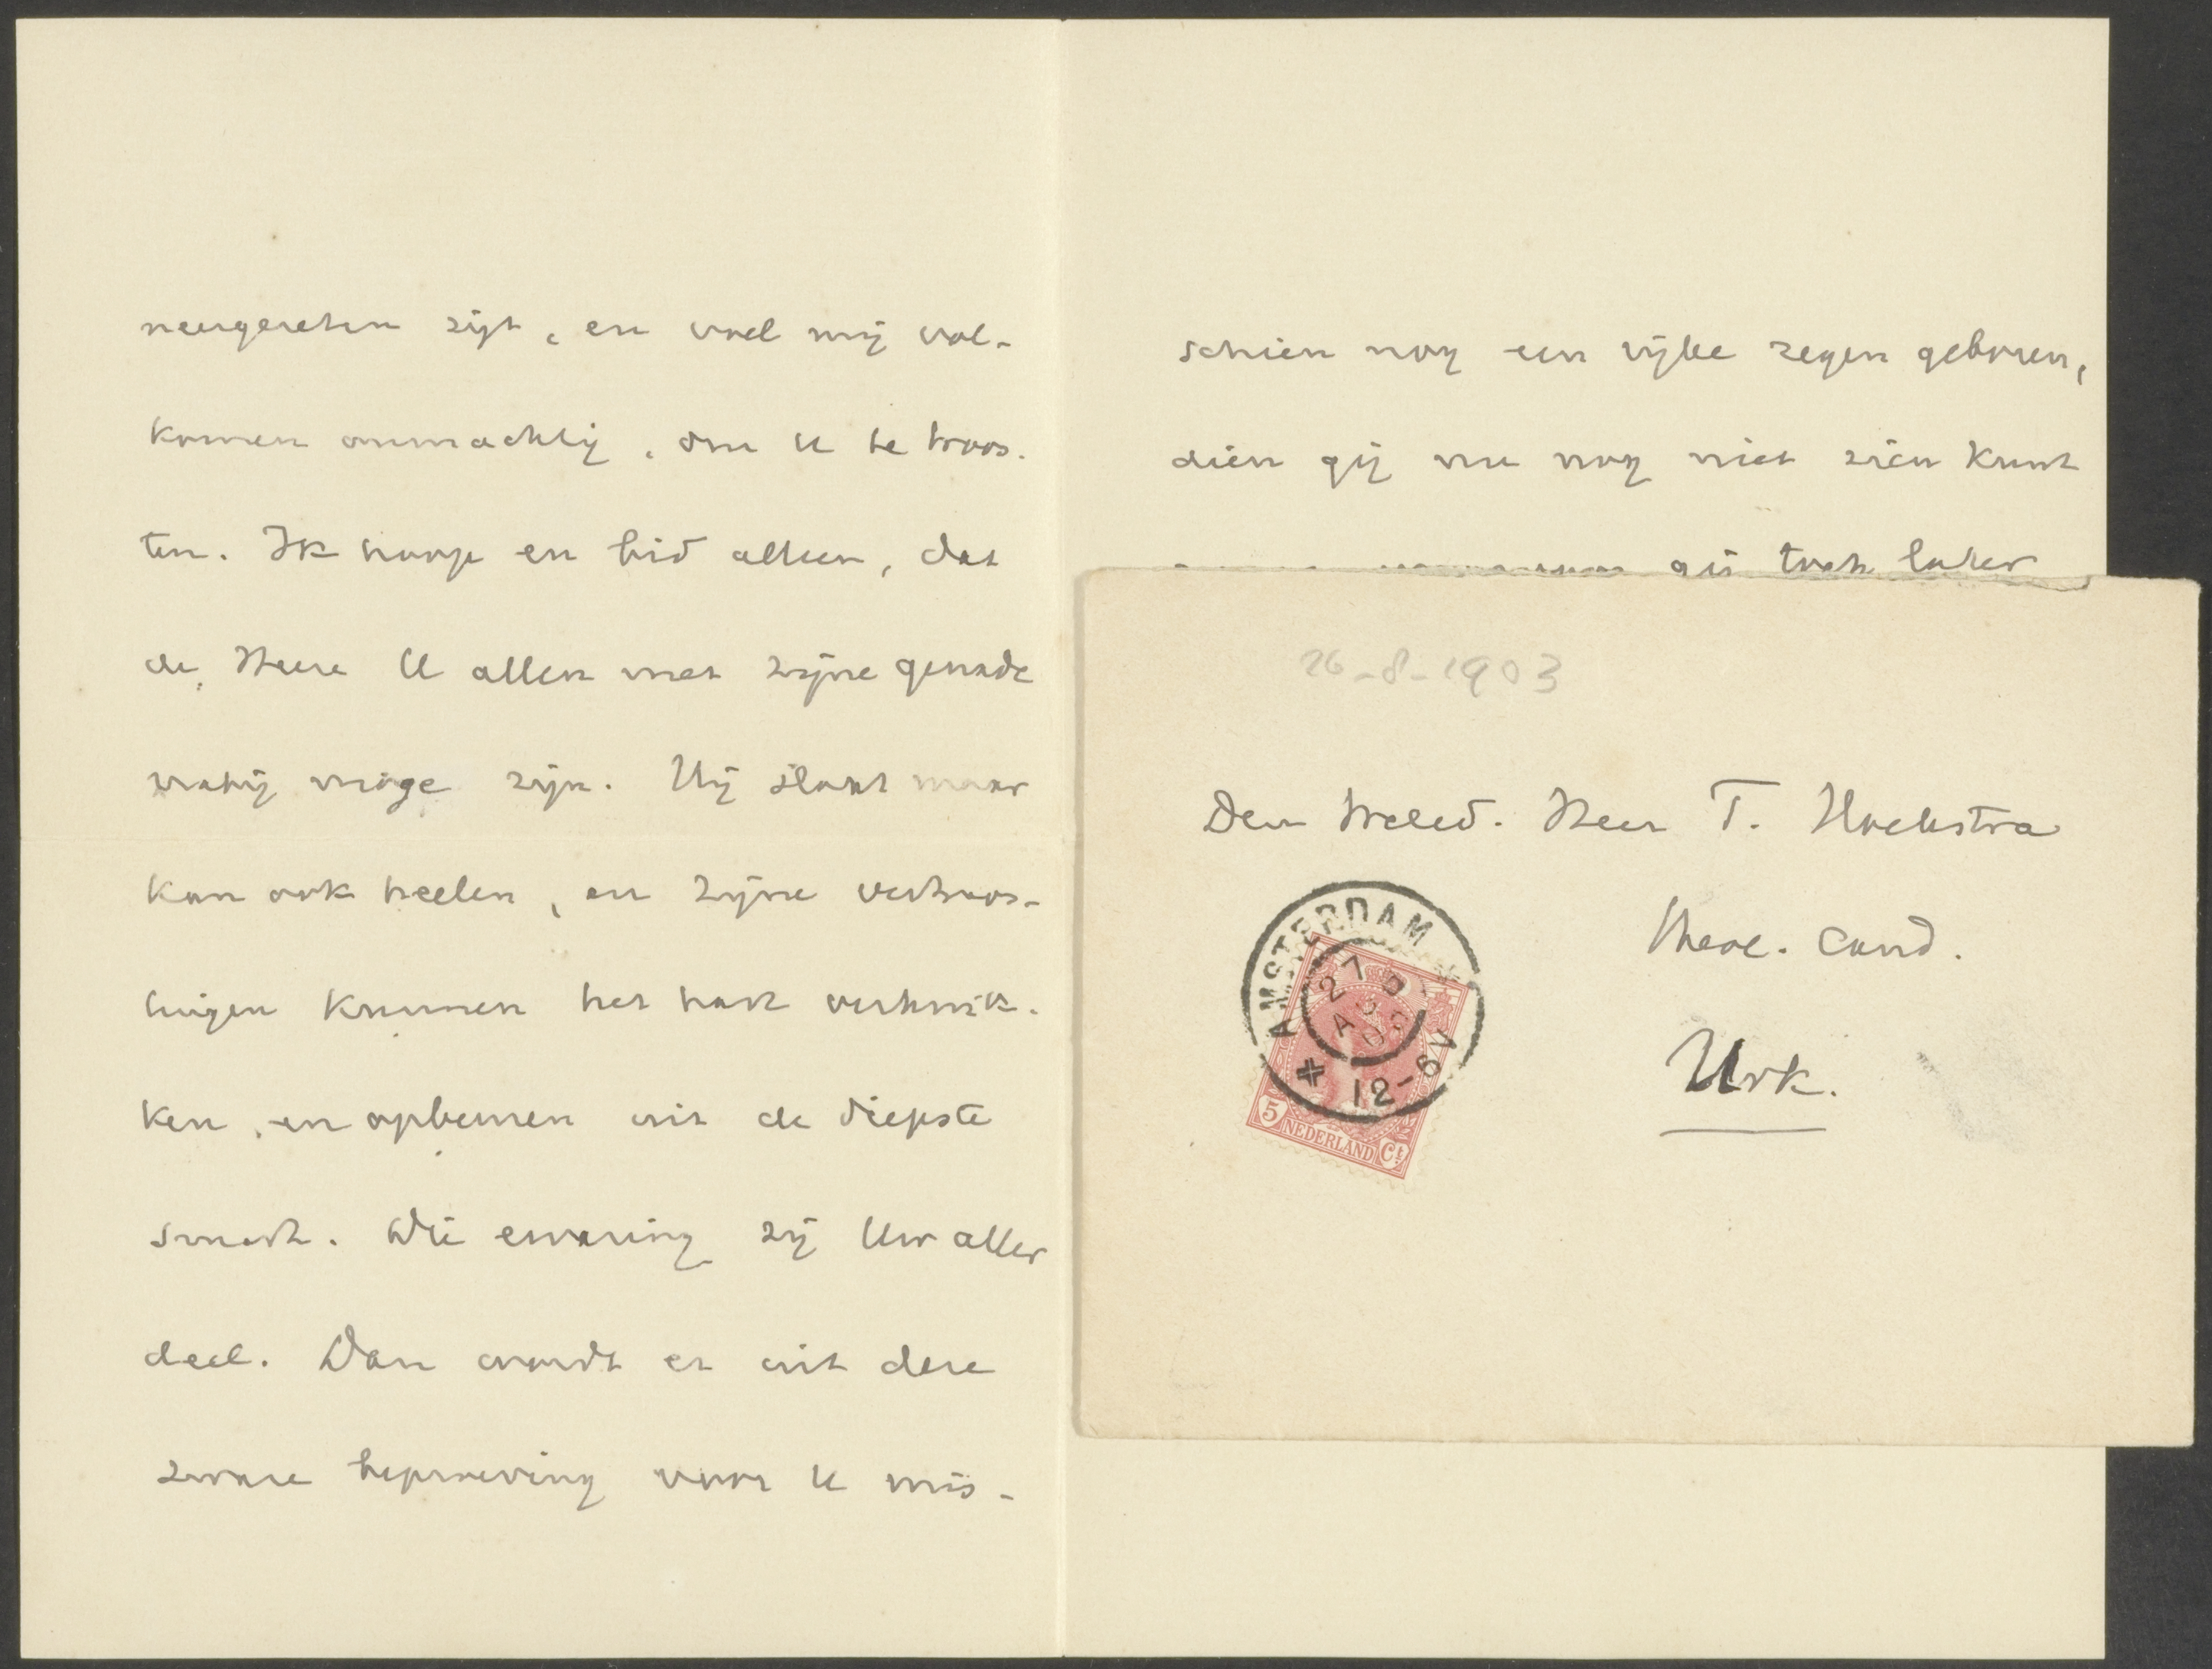 neergezeten zijt, en voel mij vol-
komen onmachtig, om U te troos-
ten. Ik hoop en bid alleen, dat
de Heere U allen met zijne genade
nabij moge zijn. Hij slaat maar
kan ook heelen, en zijne vertroos-
tingen kunnen het hart verkwik-
ken, en opbeuren uit de diepste
smart. Die ervaring zij Uw aller
deel. Dan wordt er uit deze
zware beproeving voor U mis-
schien nog een rijke zegen geboren,
dien gij nu nog niet zien kunt
gij toch later
26-8-1903
Den Weled. Heer T. Hoekstra
Theol. Cand.
Urk.
AMSTERDAM
27 AUG 03
12-6V
5 NEDERLAND Ct